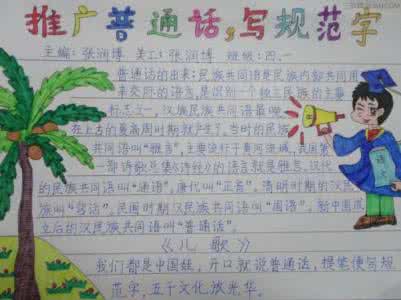 推广普通话,写规范字
主编:张润博 美工:张润博 班级:四.一
普通话的由来:民族共同语是民族内部共同用
来交际的语言,是识别一个独立民族的主要
标志之一。汉族民族共同语最晚
在上古的夏商周时期就产生了,当时的民族
共同语叫“雅言”,主要流行于黄河流域,我国第
一部诗歌总集《诗经》的语言就是雅言。汉代
的民族共同语叫“通语”,唐代叫“正音”。清明时期的汉民
族叫“官话”。民国时期汉民族共同语叫“国语”。新中国成
立后的汉民族共同语叫“普通话”。
《儿歌》
我们都是中国娃,开口就说普通话,提笔便写规
范字,五千文化放光华
语文